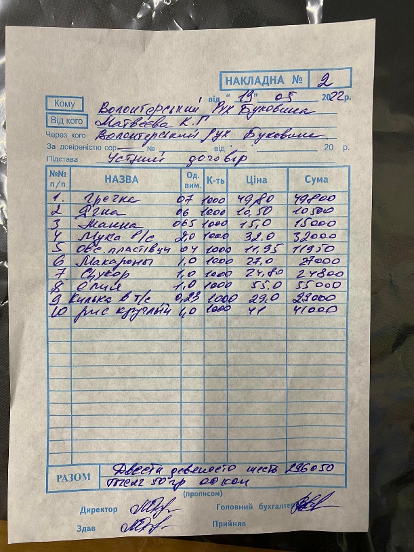 НАКЛАДНА № 2
від "19" 05 2022 р.
Кому Волонтерський Рух Буковина
Від кого Матвеева К.Г
Через кого Волонтерський рух Буковина
За довіреністю сер. № від 20 р.
Підстава Устний договір
№№ п/п НАЗВА Од. вим. К-ть Ціна Сума
1. Гречка 07 1000 49,80 49800
2 Ячна 06 1000 10,50 10500
3 Манна 065 1000 15,0 15000
4 Мука в/с 2,0 1000 32,0 32000
5 Овс. пластівці 04 1000 11,95 11950
6 Макароны 1,0 1000 27,0 27000
7 Сахар 1,0 1000 24,80 24800
8 Олия 1,0 1000 55,0 55000
9 Килька в т/с 0,23 1000 29,0 29000
10 рис круглый 1,0 1000 41 41000
РАЗОМ Двести девяносто шесть 296050
тысяч 50 гр 00 коп
(прописом)
Директор Головний бухгалтер
Здав Прийняв